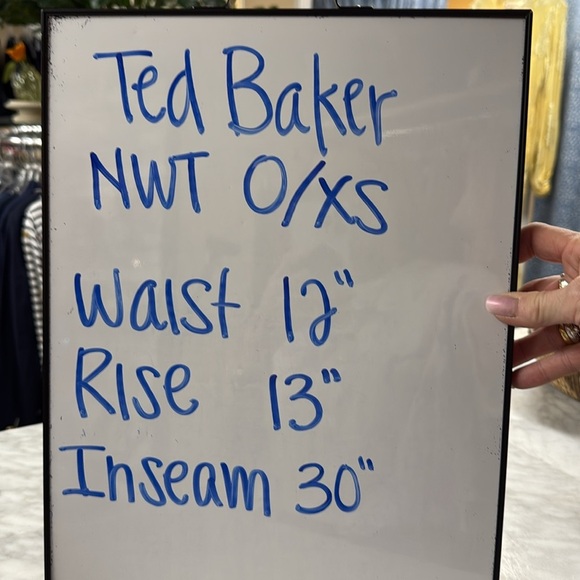 Ted Baker
NWT 0/XS
Waist 12"
Rise 13"
Inseam 30"